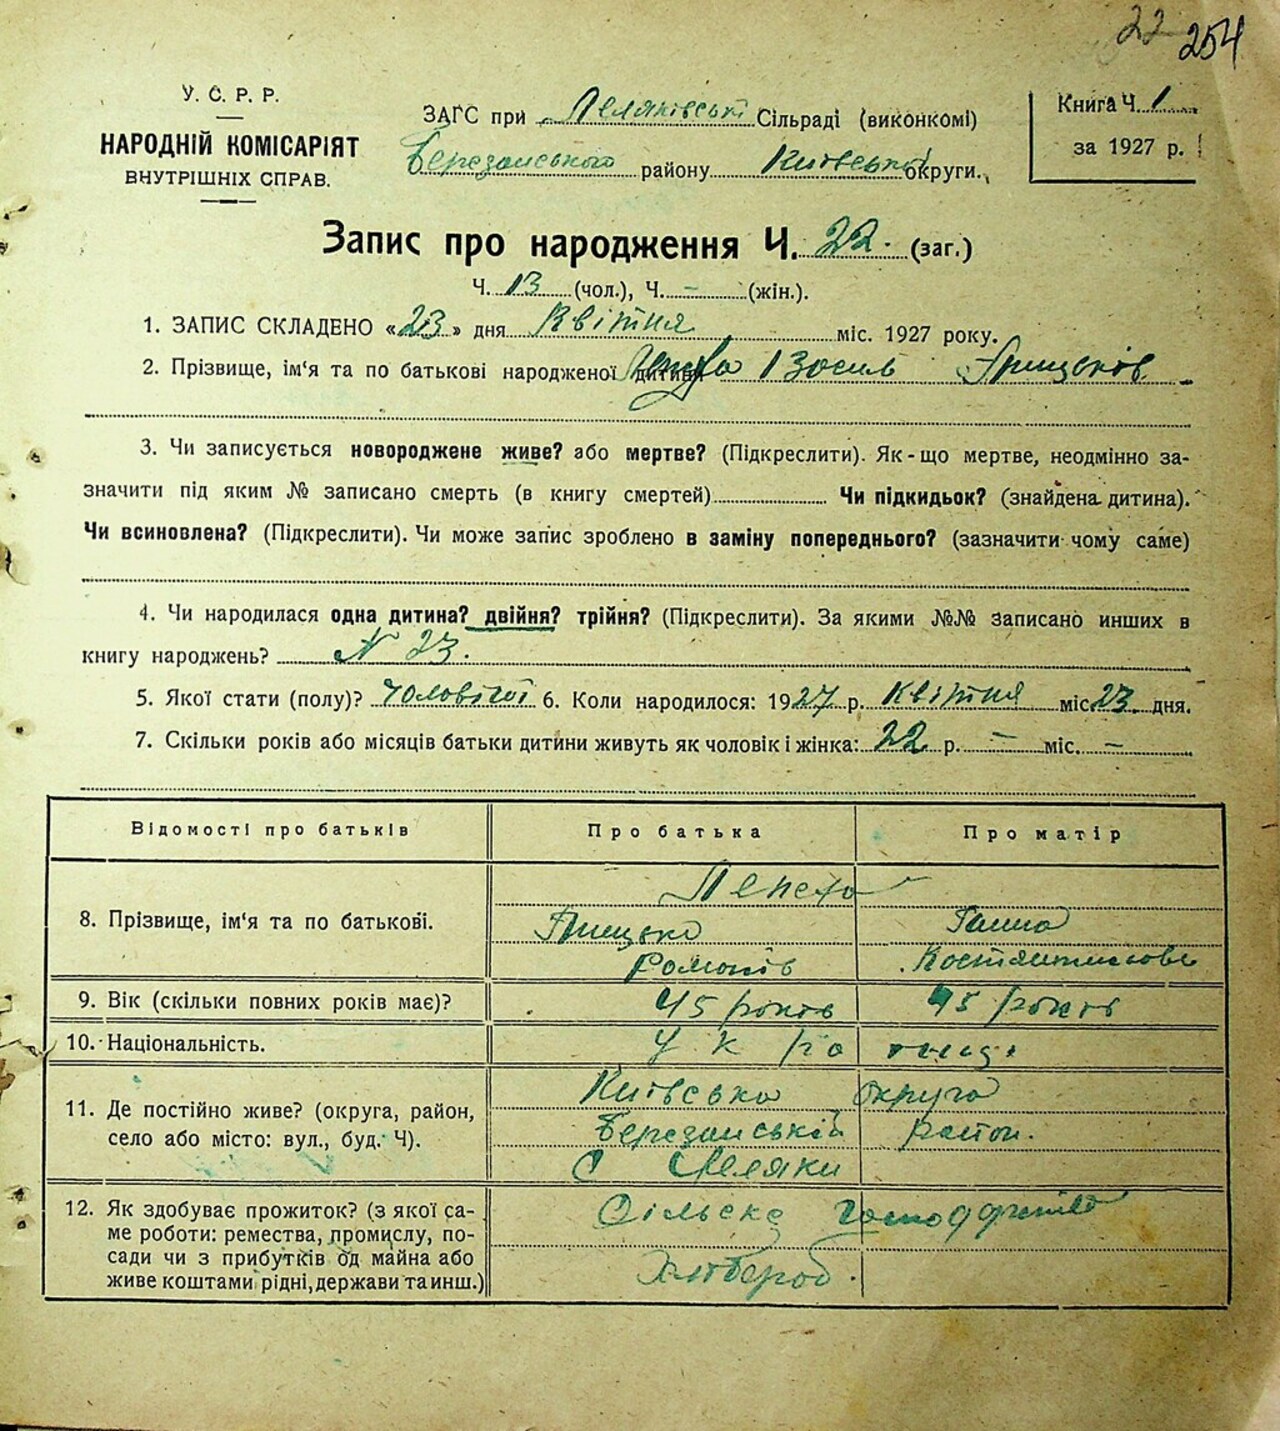 22 254
У. С. Р. Р.
НАРОДНІЙ КОМІСАРІЯТ
ВНУТРІШНІХ СПРАВ.
ЗАГС при Пеляківські Сільраді (виконкомі)
Березанського району Київської округи.
Книга Ч. 1
за 1927 р.
Запис про народження Ч. 22. (заг.)
Ч. 13 (чол.), Ч. – (жін.).
1. ЗАПИС СКЛАДЕНО «23» дня Квітня міс. 1927 року.
2. Прізвище, ім'я та по батькові народженої дитини Василь Грицьків
3. Чи записується новороджене живе? або мертве? (Підкреслити). Як-що мертве, неодмінно за-
значити під яким № записано смерть (в книгу смертей) Чи підкидьок? (знайдена дитина).
Чи всиновлена? (Підкреслити). Чи може запис зроблено в заміну попереднього? (зазначити чому саме)
4. Чи народилася одна дитина? двійня? трійня? (Підкреслити). За якими №№ записано инших в
книгу народжень? N 23.
5. Якої стати (полу)? чоловічої 6. Коли народилося: 1927 р. Квітня міс 23. дня.
7. Скільки років або місяців батьки дитини живуть як чоловік і жінка: 22 р. – міс. –
Відомості про батьків Про батька Про матір
8. Прізвище, ім'я та по батькові.
Грицько Ганна
Романів Костянтинова
9. Вік (скільки повних років має)? 45 років 45 років
10. Національність. Украінці
11. Де постійно живе? (округа, район,
село або місто: вул., буд. Ч).
Київська округа
Березанській район.
С
12. Як здобуває прожиток? (з якої са-
ме роботи: ремества, промислу, по-
сади чи з прибутків од майна або
живе коштами рідні, держави та инш.)
Сільске господарство
Хлібороб.